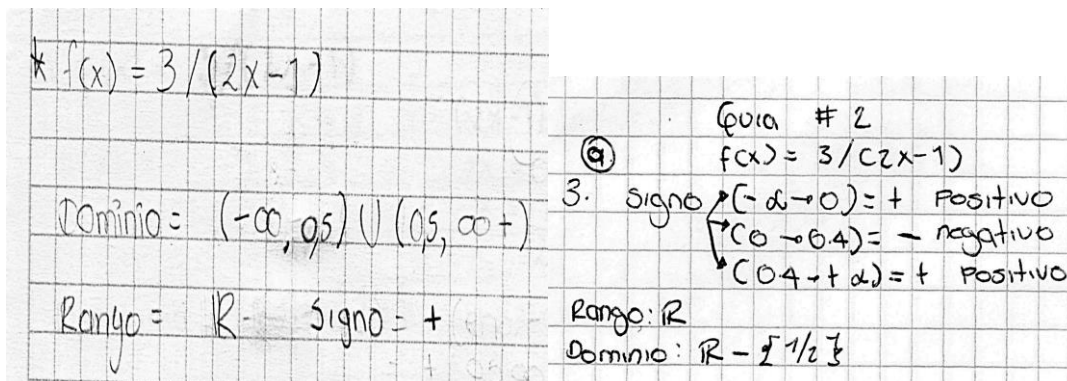 * f(x) = 3/(2x-1)
Dominio = (-∞, 0,5) U (0,5, ∞+)
Rango = ℝ Signo = +
Guia # 2
ⓐ f(x) = 3/(2x-1)
3. signo (-α→0) = + Positivo
(0→0.4) = - negativo
(0.4→+α) = + Positivo
Rango: ℝ
Dominio: ℝ - {1/2}